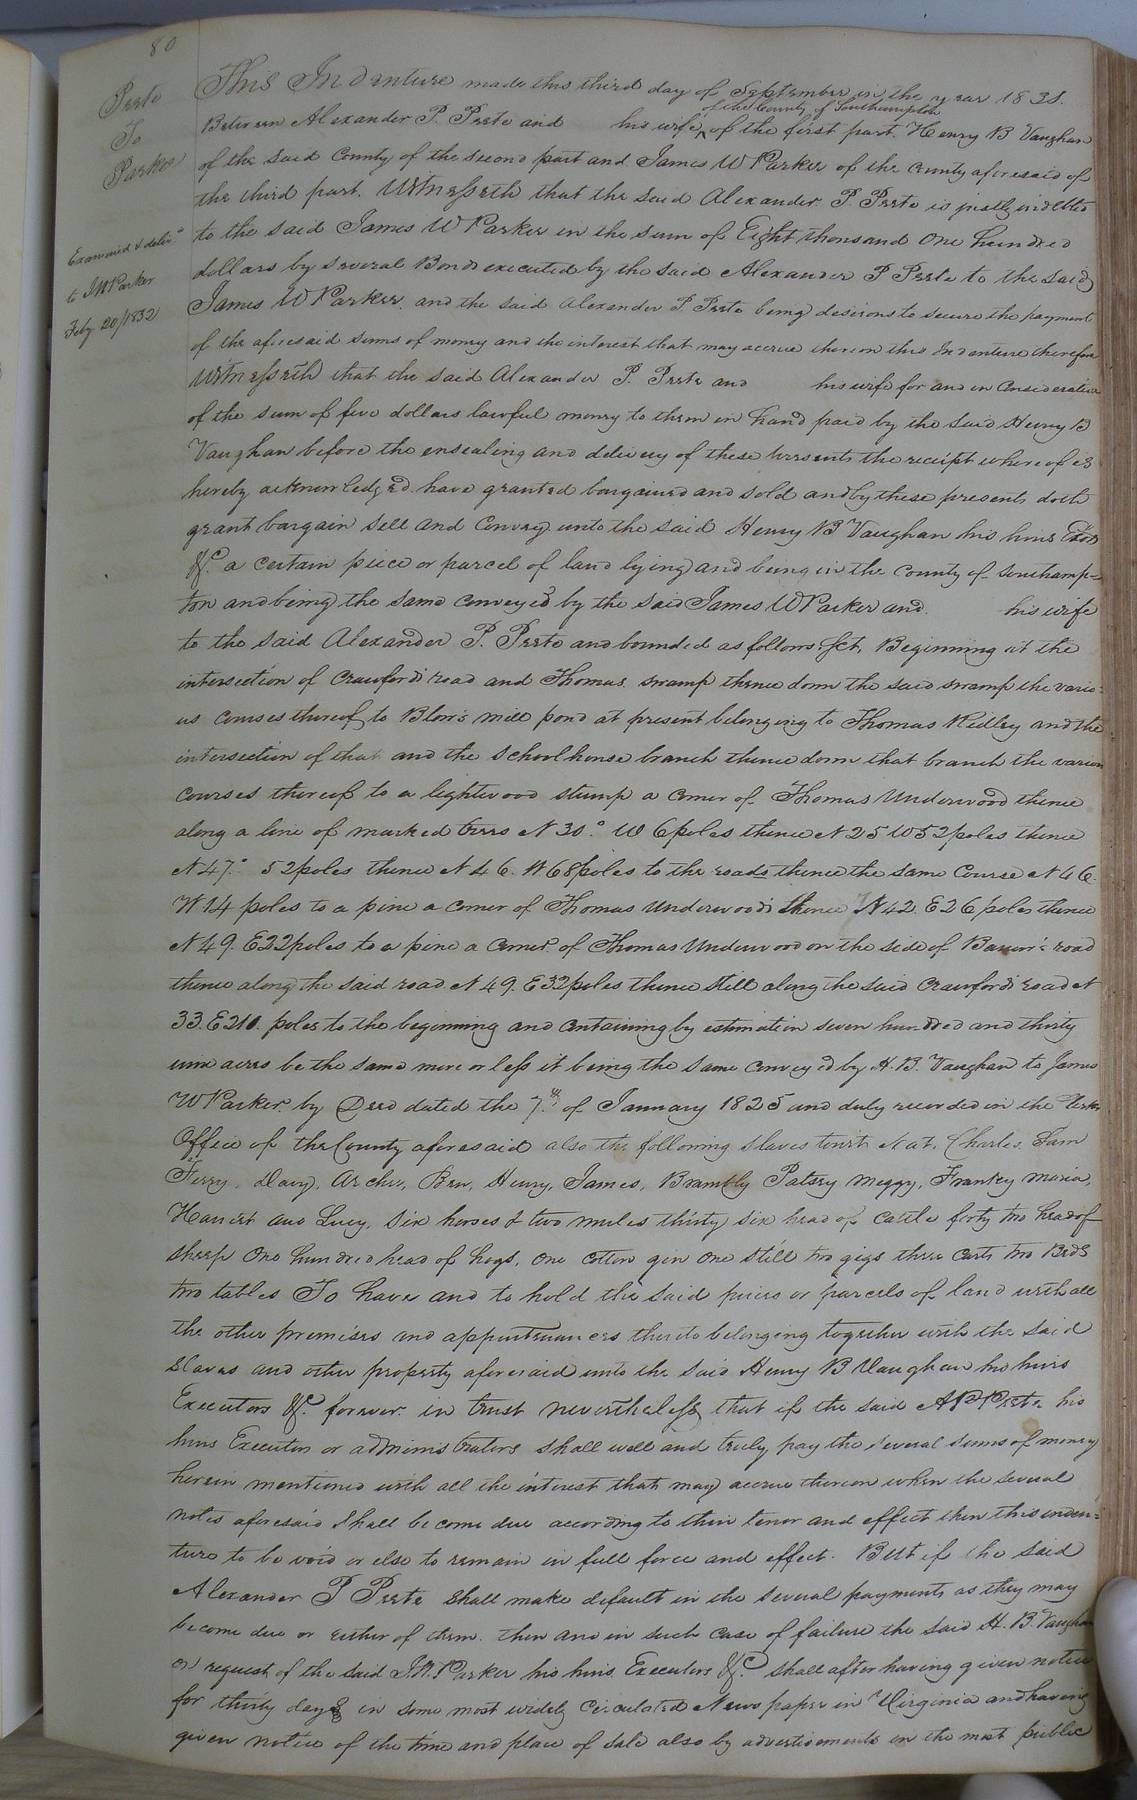 80
Peete
To
Parker
Examined & deliv.d
to J W Parker
Feby. 20/1832
This Indenture made this third day of September in the year 1831.
of the County of Southampton
Between Alexander P. Peete and his wife of the first part, Henry B Vaughan
of the said County of the second part and James W Parker of the County aforesaid of
the third part. Witnesseth that the said Alexander P. Peete is justly indebted
to the said James W Parker in the sum of Eight thousand One hundred
dollars by several Bonds executed by the said Alexander P Peete to the said
James W Parker. and the said Alexander P. Peete being desirous to secure the payment
of the aforesaid sums of money and the interest that may accrue thereon this Indenture therefore
Witnesseth that the said Alexander P. Peete and his wife for and in Consideration
of the sum of five dollars lawful money to them in hand paid by the said Henry B
Vaughan before the ensealing and delivery of these presents the receipt where of is
hereby acknowledged. have granted bargained and sold and by these presents doth
grant bargain sell and Convey unto the said Henry B Vaughan his heirs Exors
&c. a certain piece or parcel of land lying and being in the County of Southamp=
ton and being the same conveyed by the said James W Parker and his wife
to the said Alexander P. Peete and bounded as follows, sct. Beginning at the
intersection of Crawford's road and Thomas swamp thence down the said swamp the vario=
us courses thereof to Blow's mill pond at present belonging to Thomas Ridley and the
intersection of that and the School house branch thence down that branch the various
courses thereof to a lightwood stump a corner of Thomas Underwood thence
along a line of marked trees N 30.° W 6 poles thence N 25 W 52 poles thence
N 47.° 52 poles thence N 46. W 68 poles to the roads thence the same Course N 46.
W 14 poles to a pine a corner of Thomas Underwood's thence N 42. E 26 poles thence
N 49. E 22 poles to a pine a corner of Thomas Underwood on the side of road
thence along the said road N 49. E 32 poles thence still along the said Crawford's road N
33. E 210. poles to the beginning and containing by estimation seven hundred and thirty
nine acres be the same more or less it being the same conveyed by H. B. Vaughan to James
W Parker by Deed dated the 7.th of January 1825 and duly recorded in the Clerks
Office of the County aforesaid also the following slaves towit: Nat, Charles, Sam
Davy, Archer, Ben, Henry, James, Brambly Patsey Meggy, Franky Maria,
Harriet and Lucy, six horses & two mules thirty six head of cattle forty two head of
sheep One hundred head of hogs, One cotton gin one still two gigs three carts two Beds
two tables To have and to hold the said pieces or parcels of land with all
the other premises and appurtenances thereto belonging together with the said
slaves and other property aforesaid unto the said Henry B Vaughan his heirs
Executors &c. forever. in trust nevertheless that if the said A P Peete his
heirs Executors or administrators shall well and truly pay the several sums of money
herein mentioned with all the interest that may accrue thereon when the several
notes aforesaid shall become due according to their tenor and effect then this inden=
ture to be void or else to remain in full force and effect. But if the said
Alexander P Peete shall make default in the several payments as they may
become due or either of them. then and in such case of failure the said H. B. Vaughan
on request of the said J. W. Parker his heirs. Executors &c. shall after having given notice
for thirty days in some most widely circulated News paper in Virginia and having
given notice of the time and place of sale also by advertisements in the most public